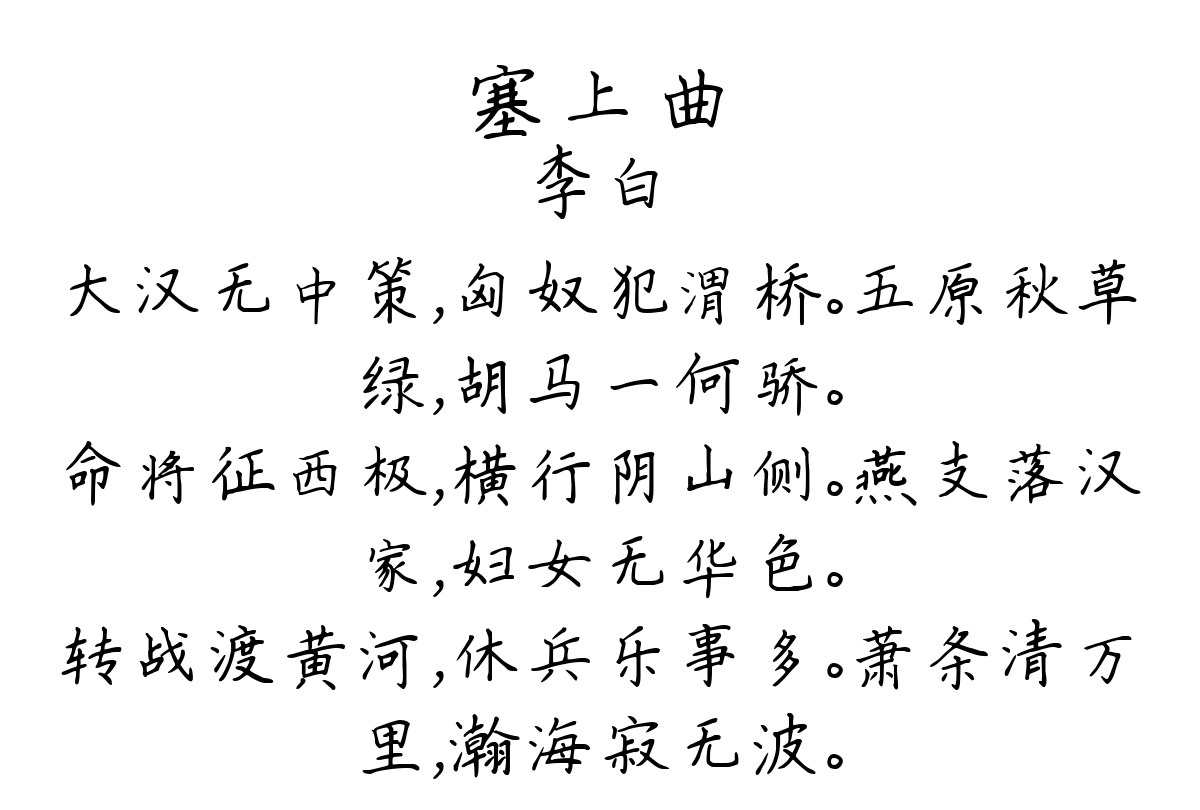 塞上曲
李白
大汉无中策,匈奴犯渭桥。五原秋草
绿,胡马一何骄。
命将征西极,横行阴山侧。燕支落汉
家,妇女无华色。
转战渡黄河,休兵乐事多。萧条清万
里,瀚海寂无波。